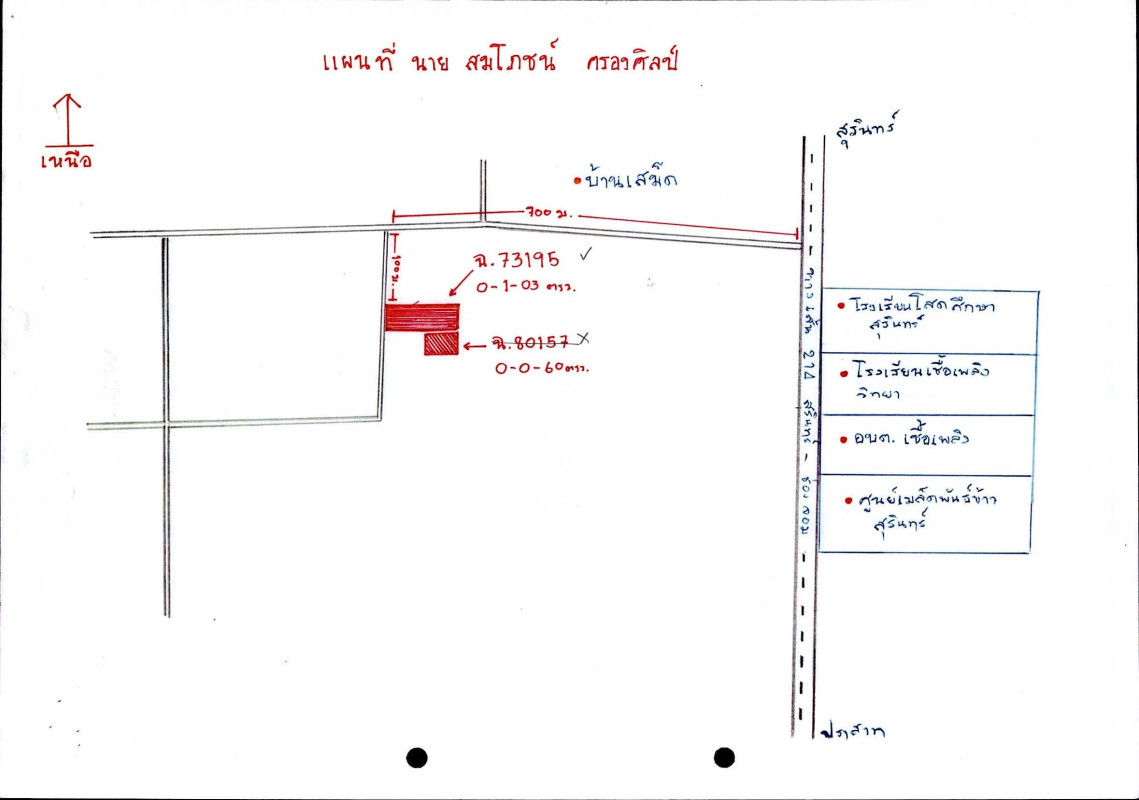 แผนที่ นาย สมโภชน์ ครองศิลป์
เหนือ
สุรินทร์
บ้านเสม็ด
700 ม.
100 ม.
ฉ.73195 ✓
0-1-03 ตรว.
ฉ.80157 ×
0-0-60 ตรว.
ทางเส้น 214 สุรินทร์ - ช่องจอม
โรงเรียนโสตศึกษา
สุรินทร์
โรงเรียนเชื้อเพลิง
วิทยา
อบต. เชื้อเพลิง
ศูนย์เมล็ดพันธ์ข้าว
สุรินทร์
ปราสาท